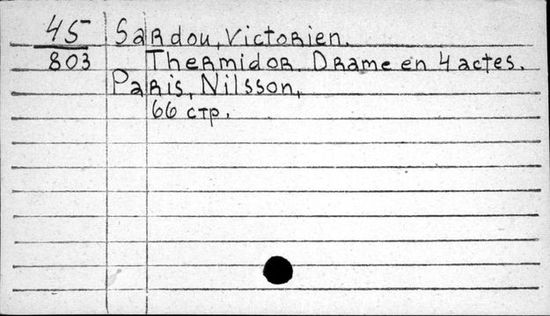 45 Sardou, Victorien.
803 Thermidor. Drame en 4 actes.
Paris, Nilsson,
66 стр.